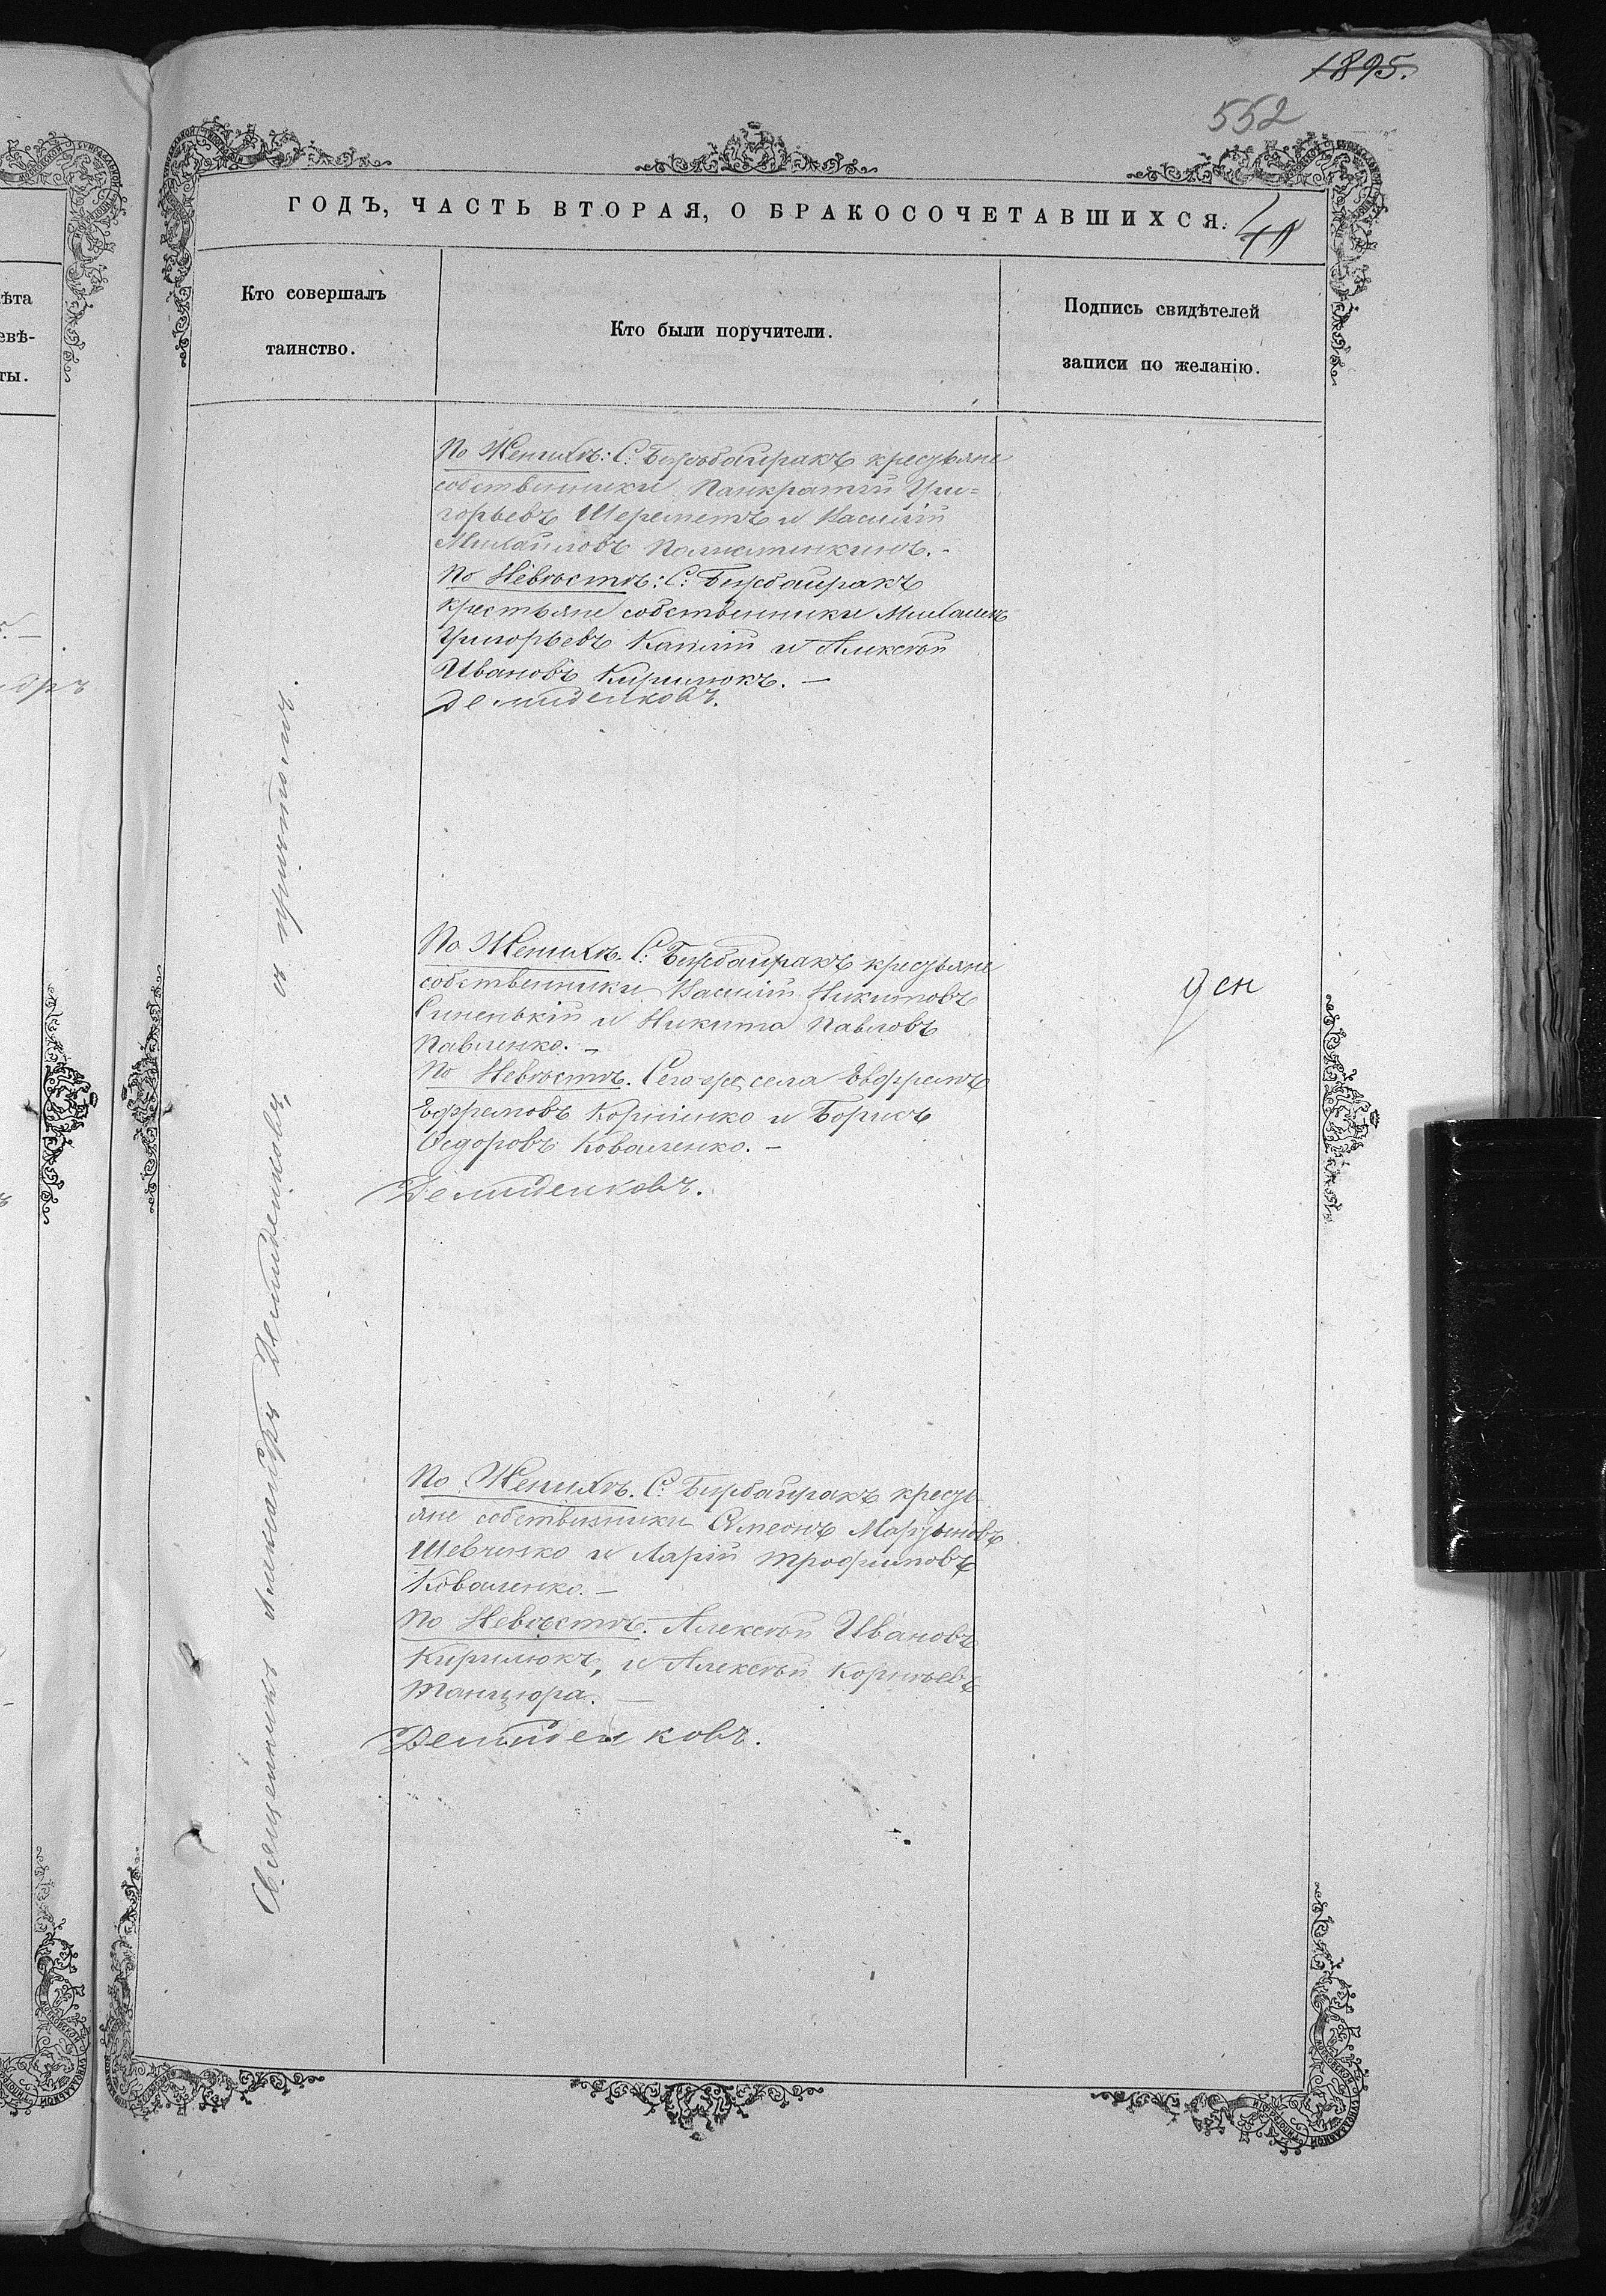 1895.
552
ГОДЪ, ЧАСТЬ ВТОРАЯ, О БРАКОСОЧЕТАВШИХСЯ.
Кто совершалъ
таинство.
Кто были поручители.
Подпись свидѣтелей
записи по желанію.
По Женихѣ: С. Бирбаиракъ крестьяне
собственники Панкратій Гри=
горьевъ Шереметъ и Василій
Михаиловъ
По Невѣстѣ: С. Бирбаиракъ
крестьяне собственники Михаилъ
Григорьевъ Каплій и Алексѣй
Ивановъ Кирилюкъ. —
Демиденковъ.
По Женихѣ. С. Бирбаиракъ крестьяне
собственники Василій Никитовъ
Синенькій и Никита Павловъ
Павленко. —
По Невѣстѣ. Сего же села
Корніенко и Борисъ
Ѳедоровъ Коваленко. —
Демиденковъ.
По Женихѣ. С. Бирбаиракъ кресть-
яне собственники Симеонъ Мартыновъ
Шевченко и Ларій Трофимовъ
Коваленко. —
По Невѣстѣ. Алексѣй Ивановъ
Кирилюкъ, и Алексѣй Корнѣевъ
Танцюра. —
Демиденковъ.
Священникъ Александръ Демиденковъ, съ причтомъ.